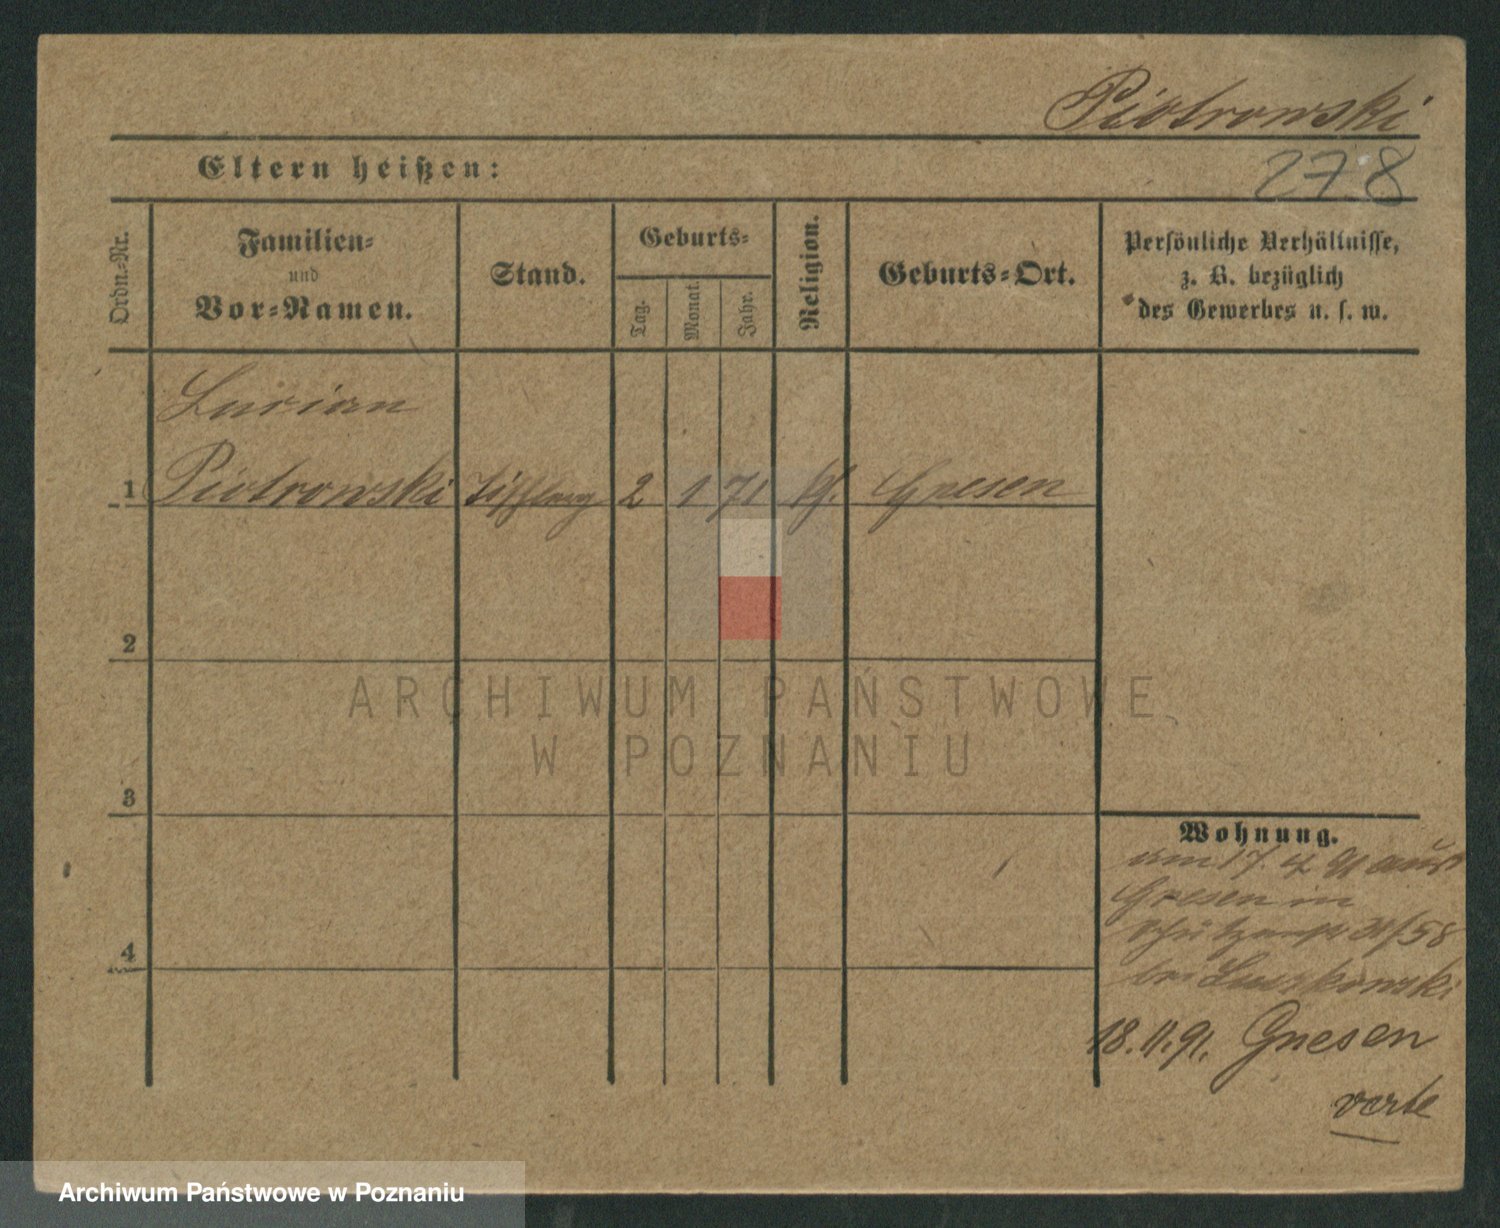 Piotrowski
Eltern heißen:
278
Ordn.-Nr.
Familien-
und
Vor-Namen.
Stand.
Geburts-
Tag.
Monat.
Jahr.
Religion.
Geburts-Ort.
Persönliche Verhältnisse,
z. B. bezüglich
des Gewerbes u. s. w.
Lucian
1 Piotrowski 2 1 71 Gnesen
2
3
4
Wohnung.
am 17. 4 91 aus
Gnesen in
31/58
bei
18.11.91. Gnesen
verte
ARCHIWUM PAŃSTWOWE
W POZNANIU
Archiwum Państwowe w Poznaniu